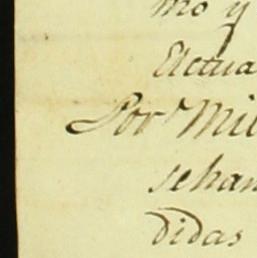 mo y
Elctua
Por Mil
sehan
didas